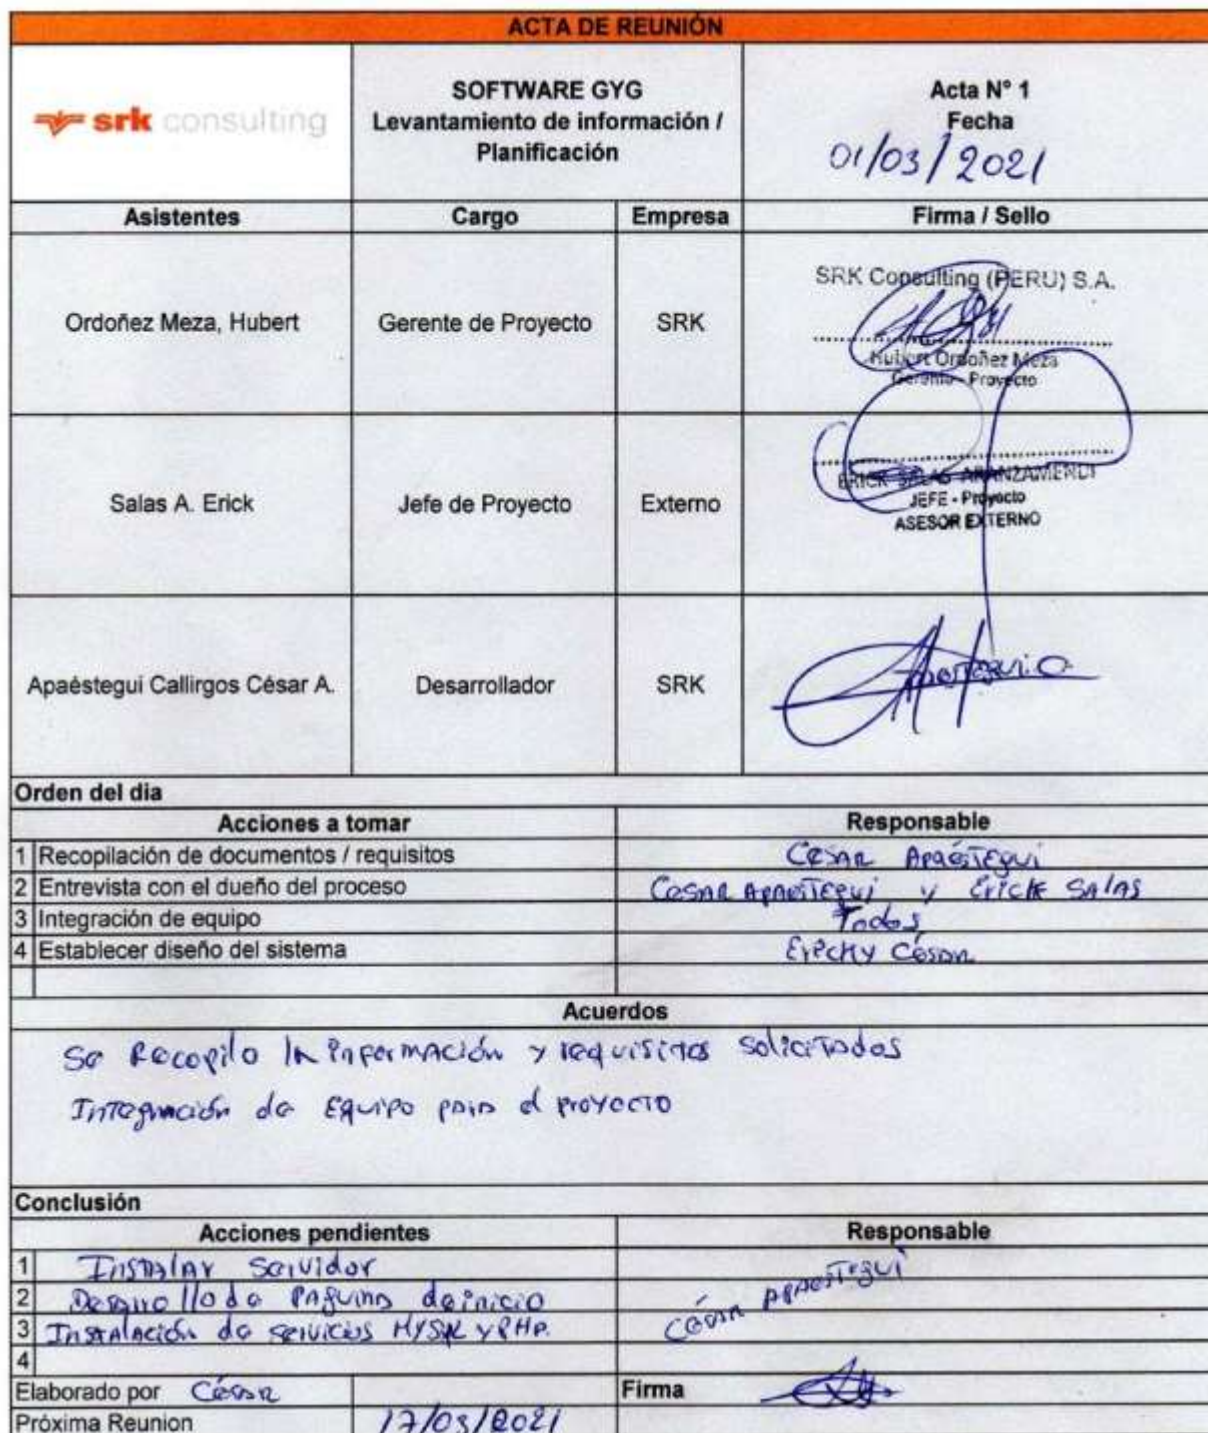 ACTA DE REUNIÓN
srk consulting
SOFTWARE GYG
Levantamiento de información /
Planificación
Acta N° 1
Fecha
01/03/2021
Asistentes Cargo Empresa Firma / Sello
Ordoñez Meza, Hubert Gerente de Proyecto SRK
SRK Consulting (PERU) S.A.
Hubert Ordoñez Meza
Gerente - Proyecto
Salas A. Erick Jefe de Proyecto Externo
ERICK SALAS ARANZAMENDI
JEFE - Proyecto
ASESOR EXTERNO
Apaéstegui Callirgos César A. Desarrollador SRK
Orden del dia
Acciones a tomar Responsable
1 Recopilación de documentos / requisitos César Apaéstegui
2 Entrevista con el dueño del proceso Cesar Apaestegui y Erick Salas
3 Integración de equipo Todos
4 Establecer diseño del sistema Erick y César
Acuerdos
Se Recopilo la información y requisitos solicitados
Integración de Equipo para el proyecto
Conclusión
Acciones pendientes Responsable
1 Instalar Servidor
2 Desarrollo de Paguina de inicio César Apaestegui
3 Instalación de servicios MYSQL y PHP.
4
Elaborado por César Firma
Próxima Reunion 17/03/2021